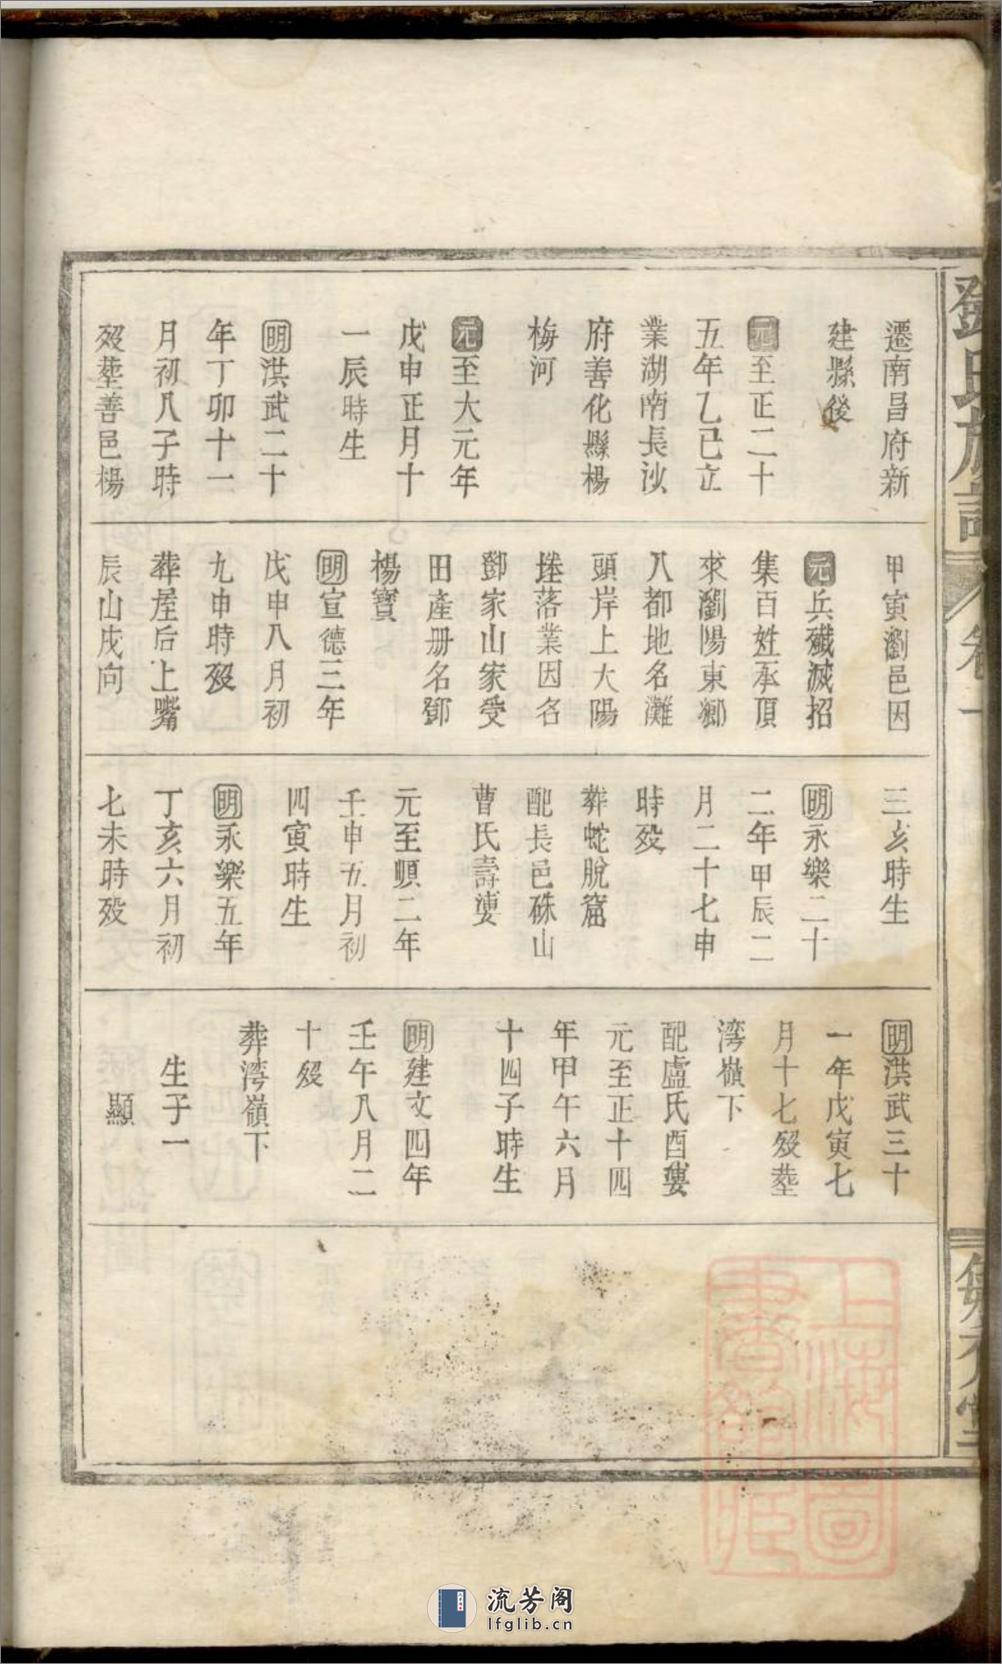 鄧氏族譜
卷一
遷南昌府新
建縣後
元至正二十
五年乙己立
業湖南長沙
府善化縣楊
梅河
元至大元年
戊申正月十
一辰時生
明洪武二十
年丁卯十一
月初八子時
歿塟善邑楊
甲寅瀏邑因
元兵殲滅招
集百姓承頂
來瀏陽東鄉
八都地名灘
頭岸上大陽
落業因名
鄧家山家受
田產册名鄧
楊寶
明宣德三年
戊申八月初
九申時歿
葬屋后上嘴
辰山戌向
三亥時生
明永樂二十
二年甲辰二
月二十七申
時歿
葬蛇脫窟
配長邑硃山
曹氏壽
元至順二年
壬申五月初
四寅時生
明永樂五年
丁亥六月初
七未時歿
明洪武三十
一年戊寅七
月十七歿塟
湾嶺下
配盧氏酉
元至正十四
年甲午六月
十四子時生
明建文四年
壬午八月二
十歿
葬湾嶺下
生子一
顯
上海圖
書館藏
流芳阁
lfglib.cn